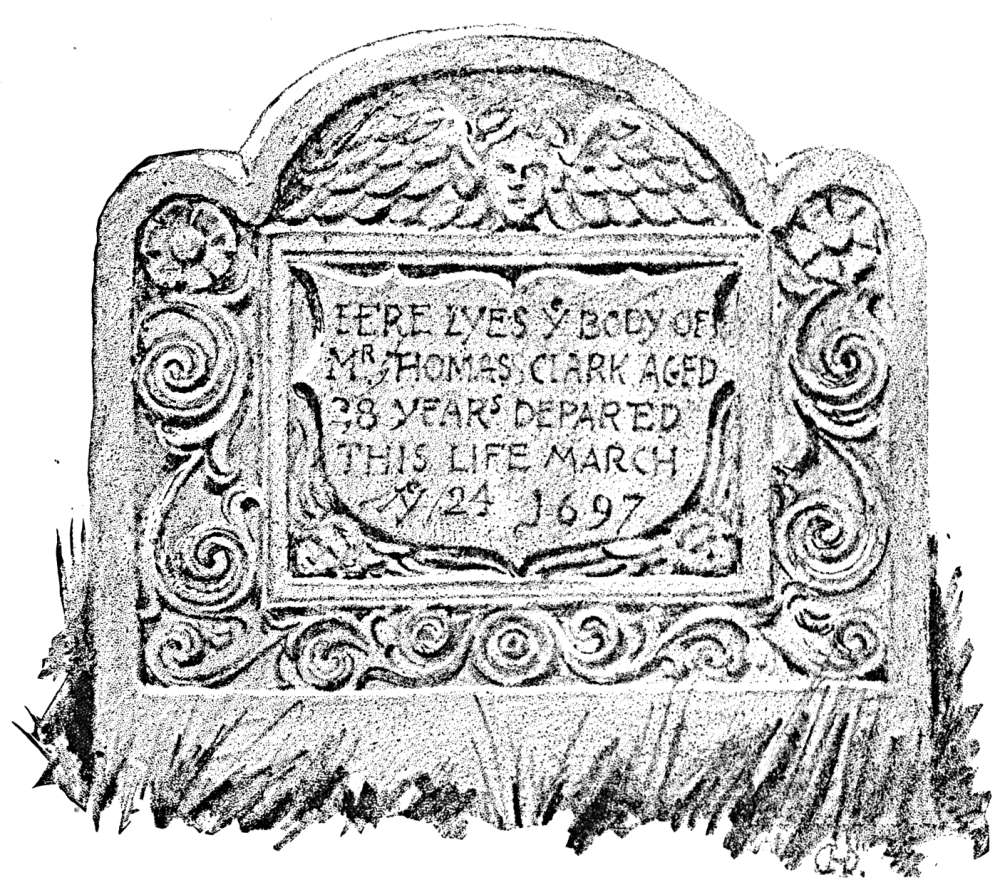 HERE LYES Yᵉ BODY OF
Mᴿ THOMAS CLARK AGED
98 YEARˢ DEPARTED
THIS LIFE MARCH
Yᵉ 24 1697